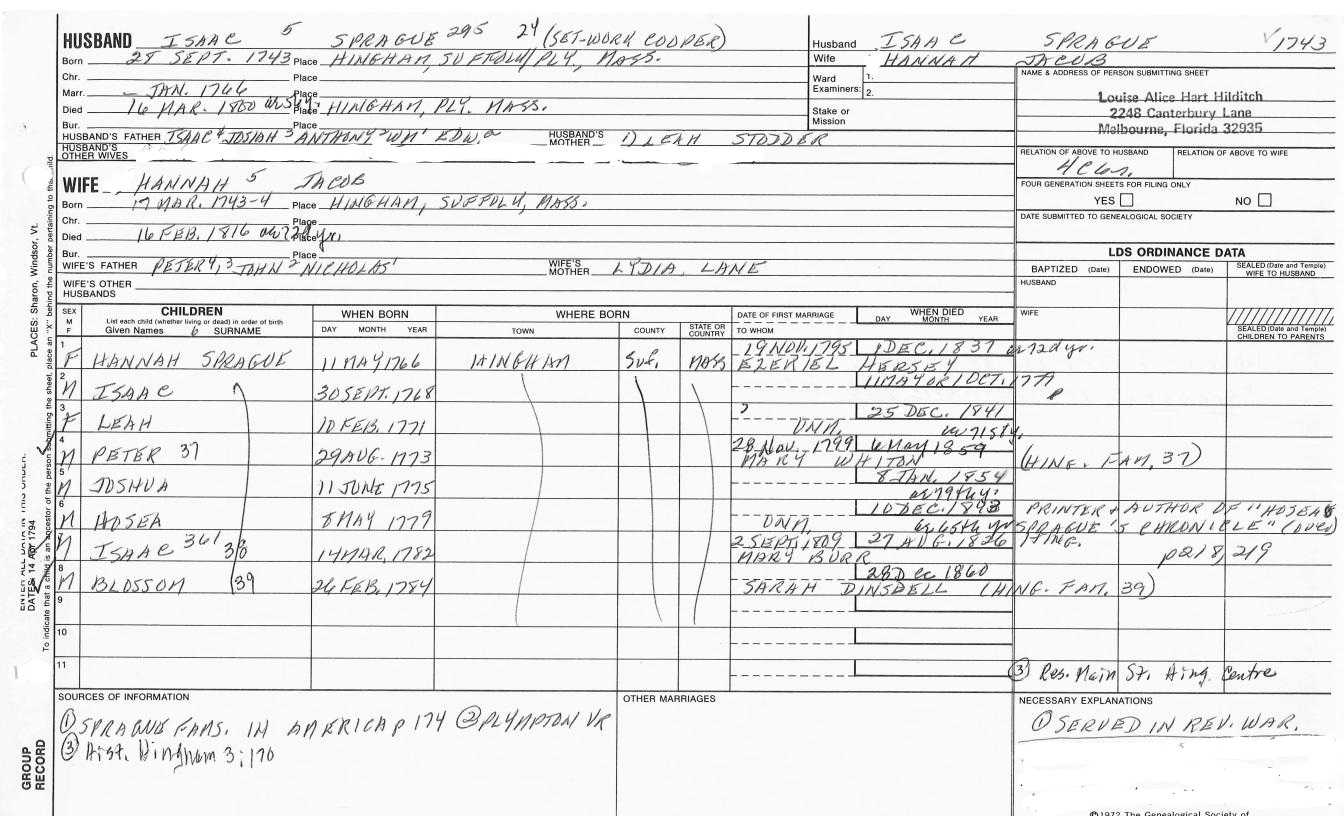 HUSBAND ISAAC 5 SPRAGUE 295 24 (SET-WORK COOPER)
Born 28 SEPT. 1743 Place HINGHAM, SUFFOLK/PLY., MASS.
Chr. Place
Marr. – JAN. 1766 Place
Died 16 MAR. 1800 Place HINGHAM, PLY. MASS.
Bur. Place
HUSBAND'S FATHER ISAAC 4 JOSIAH 3 ANTHONY 2 WM 1 EDW. a HUSBAND'S MOTHER 1) LEAH STODDER
HUSBAND'S OTHER WIVES
Husband ISAAC SPRAGUE √1743
Wife HANNAH JACOB
Ward Examiners: 1. 2.
Stake or Mission
NAME & ADDRESS OF PERSON SUBMITTING SHEET
Louise Alice Hart Hilditch
2248 Canterbury Lane
Melbourne, Florida 32935
RELATION OF ABOVE TO HUSBAND RELATION OF ABOVE TO WIFE
FOUR GENERATION SHEETS FOR FILING ONLY
YES NO
DATE SUBMITTED TO GENEALOGICAL SOCIETY
WIFE HANNAH 5 JACOB
Born 17 MAR. 1743-4 Place HINGHAM, SUFFOLK, MASS.
Chr. Place
Died 16 FEB. 1816 Place
Bur. Place
WIFE'S FATHER PETER 4, 3 JOHN 2 NICHOLAS 1 WIFE'S MOTHER LYDIA LANE
WIFE'S OTHER HUSBANDS
LDS ORDINANCE DATA
BAPTIZED (Date) ENDOWED (Date) SEALED (Date and Temple) WIFE TO HUSBAND
HUSBAND
WIFE
SEALED (Date and Temple) CHILDREN TO PARENTS
SEX M F CHILDREN WHEN BORN WHERE BORN DATE OF FIRST MARRIAGE WHEN DIED
List each child (whether living or dead) in order of birth
Given Names 6 SURNAME DAY MONTH YEAR TOWN COUNTY STATE OR COUNTRY TO WHOM DAY MONTH YEAR
1 19 NOV. 1795 1 DEC. 1837 ae 72d yr.
F HANNAH SPRAGUE 11 MAY 1766 HINGHAM Suf. MASS EZEKIEL HERSEY
2 11 MAY OR 1 OCT. 1779
M ISAAC 30 SEPT. 1768
3 25 DEC. 1841
F LEAH 10 FEB. 1771 UNM.
4 28 Nov. 1799 6 May 1859
M PETER 37 29 AUG. 1773 MARY WHITON (HING. FAM. 37)
5 8 JAN. 1854
M JOSHUA 11 JUNE 1775
6 10 DEC. 1843 PRINTER + AUTHOR OF "HOSEA
M HOSEA 8 MAY 1779 UNM. SPRAGUE'S CHRONICLE"
7 2 SEPT. 1809 27 AUG. 1826 HING.
M ISAAC 361 38 14 MAR. 1782 MARY BURR p 218, 219
8 28 Dec 1860
M BLOSSOM 39 26 FEB. 1784 SARAH DINSDELL (HING. FAM. 39)
9
10
11 ③ Res. Main St. Hing. Centre
SOURCES OF INFORMATION OTHER MARRIAGES NECESSARY EXPLANATIONS
① SPRAGUE FAMS. IN AMERICA P 174 ② PLYMPTON VR ① SERVED IN REV. WAR.
③ Hist. Hingham 3; 170
©1972 The Genealogical Society of
GROUP RECORD
ENTER ALL DATA IN THIS ORDER:
DATES: 14 Apr 1794
PLACES: Sharon, Windsor, Vt.
To indicate that a child is an ancestor of the person submitting the sheet, place an "X" behind the number pertaining to that child.